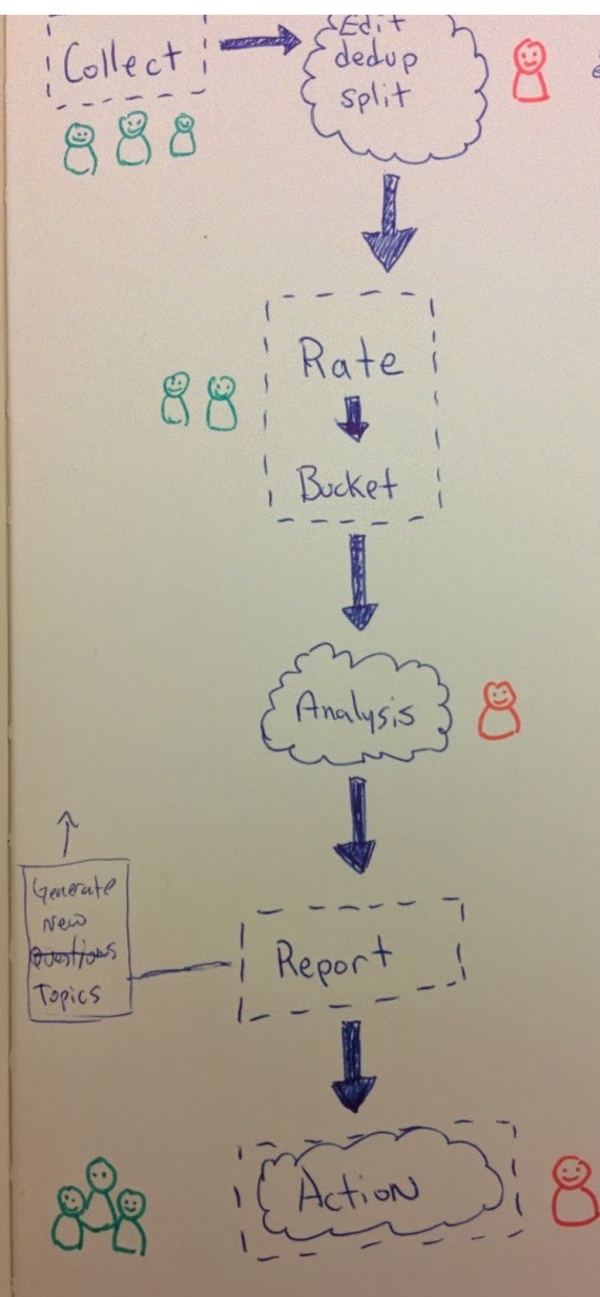 Collect
Edit
dedup
split
Rate
Bucket
Analysis
Generate
New
Questions
Topics
Report
Action